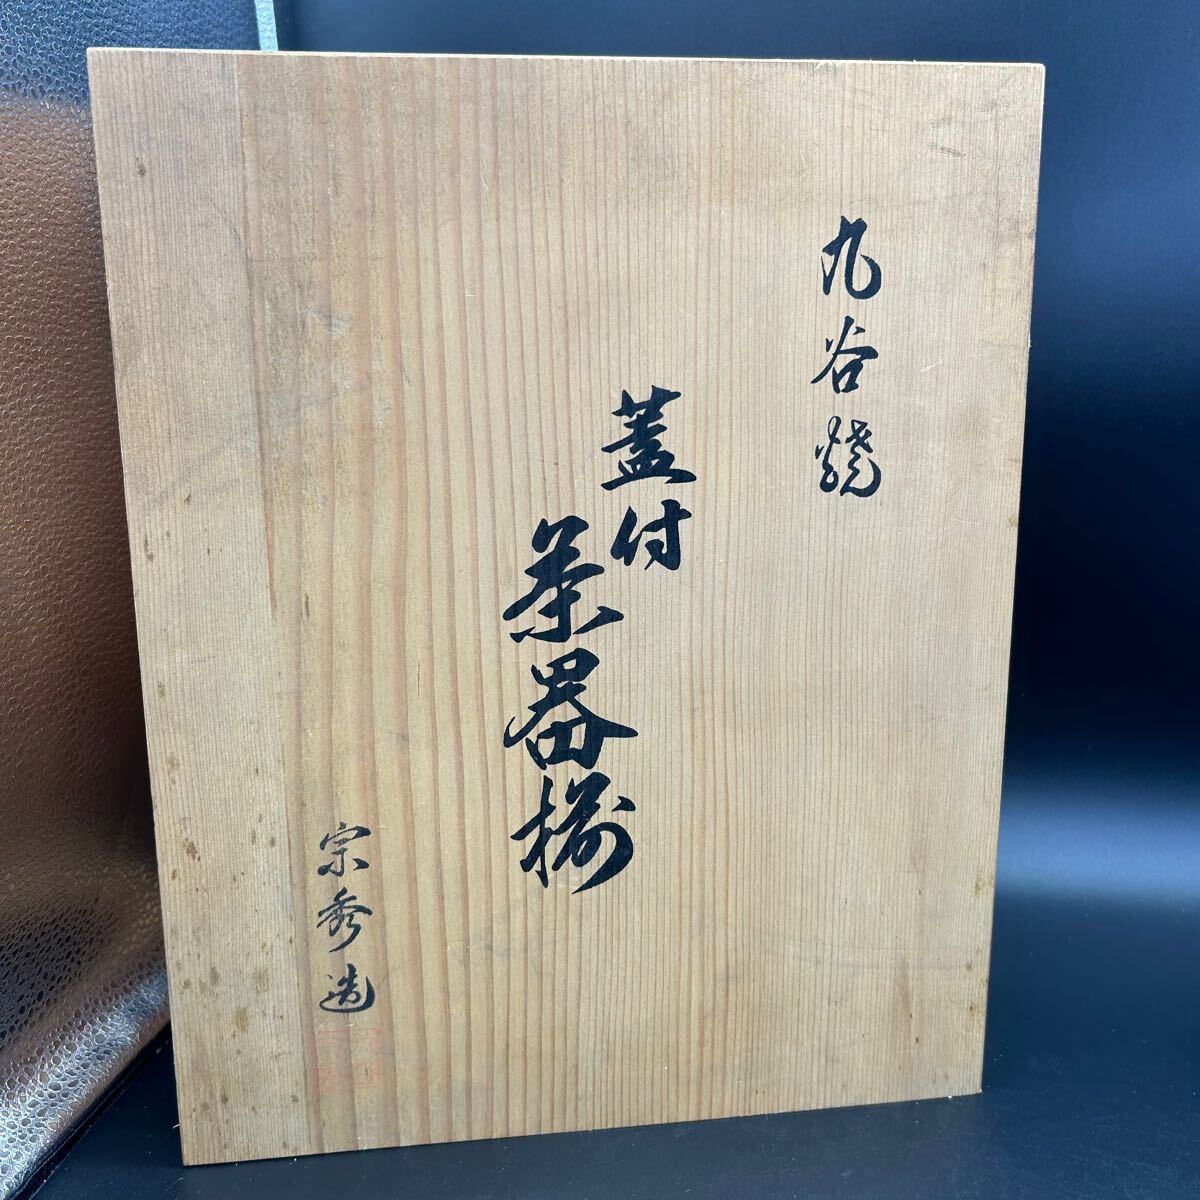 九谷燒
蓋付
茶器揃
宗秀造